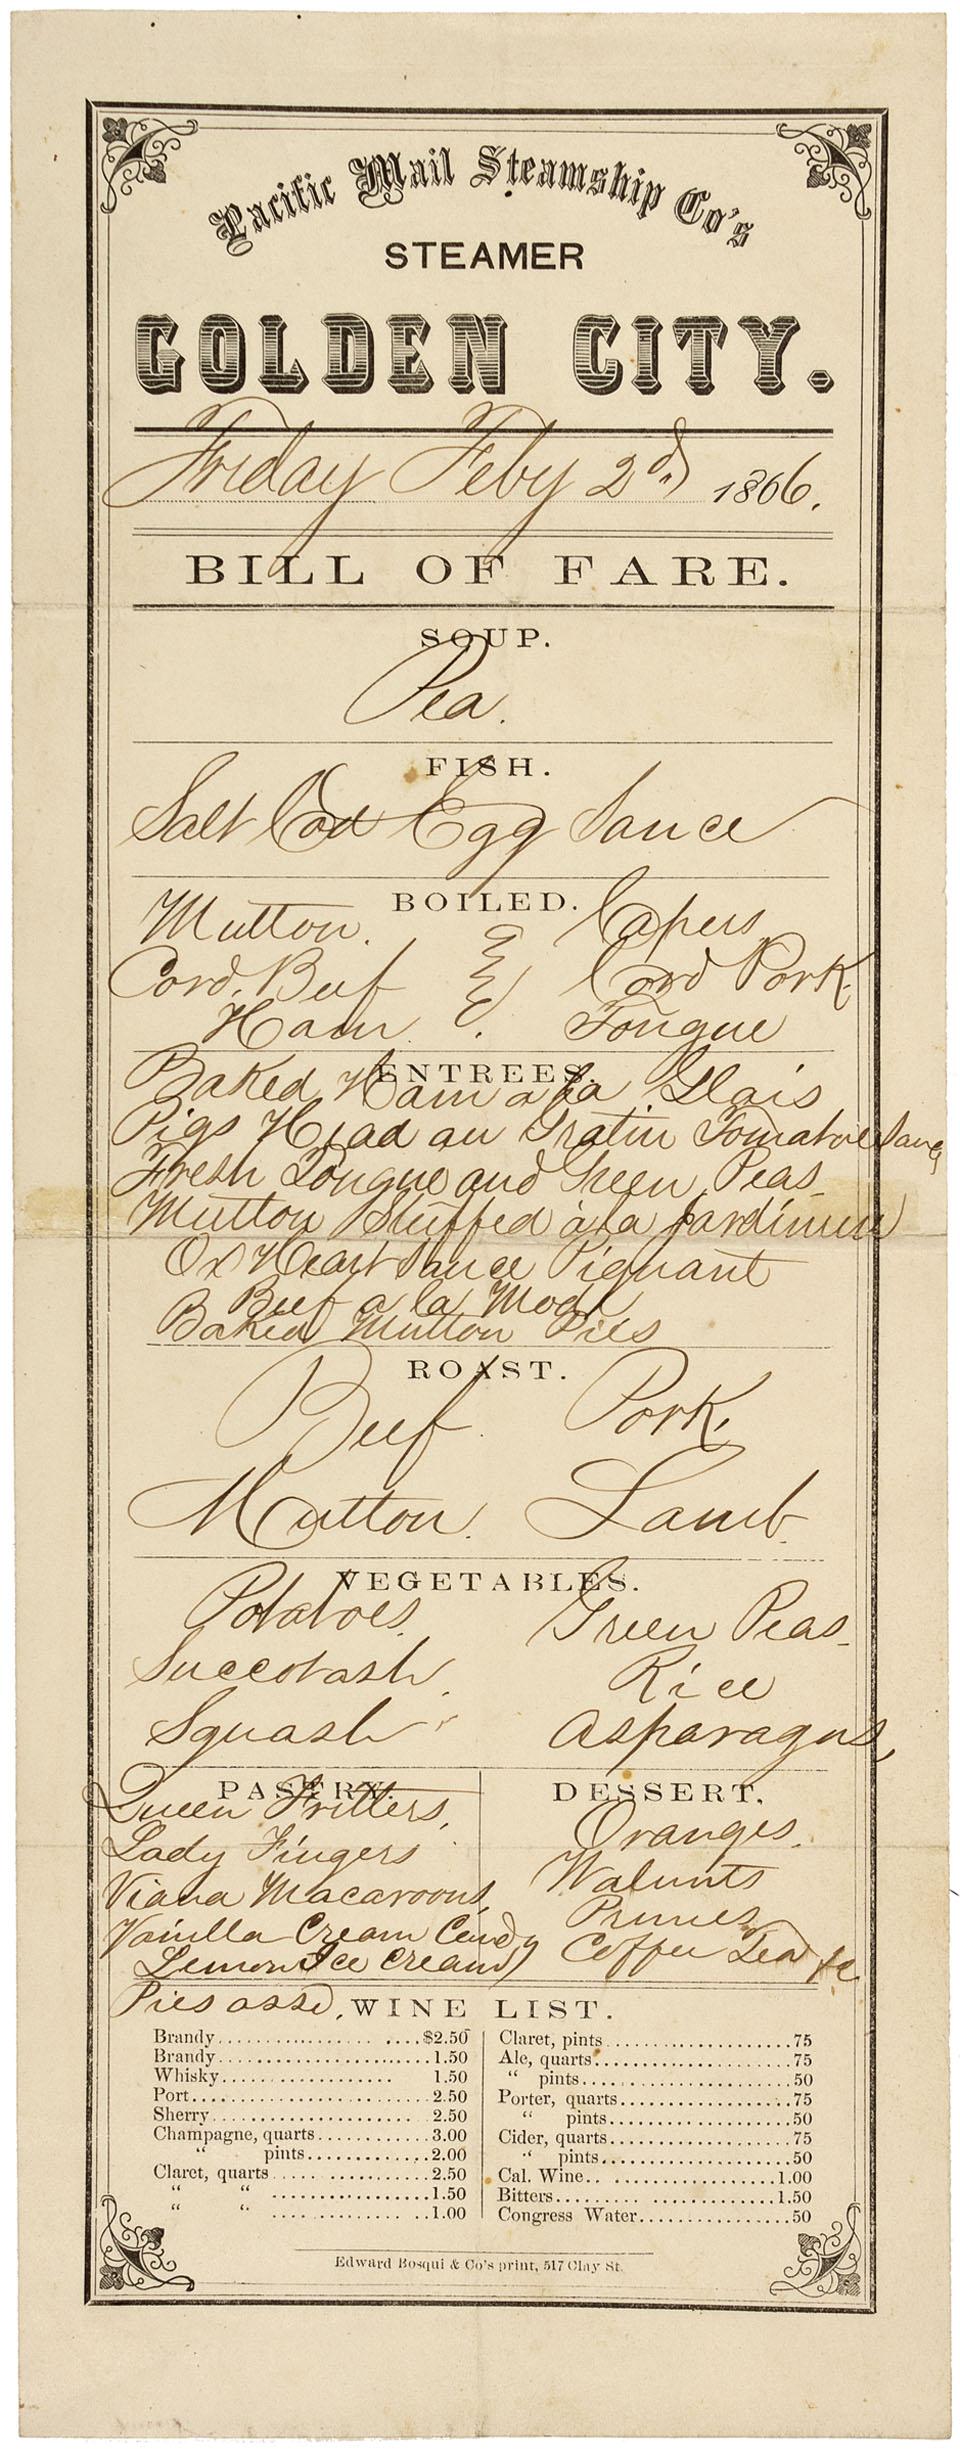 Pacific Mail Steamship Co's
STEAMER
GOLDEN CITY.
Friday Feby 2d, 1866.
BILL OF FARE.
SOUP.
Pea.
FISH.
Salt Cod Egg Sauce
BOILED.
Mutton. Capers
Cord. Beef Cord Pork
Ham. Tongue
ENTREES.
Baked Ham a la Glais
Pigs Head au Gratin Tomatoe Sauce
Fresh Tongue and Green Peas
Mutton Stuffed a la Jardiniere
Ox Heart Sauce Piquant
Beef a la Mode
Baked Mutton Pies
ROAST.
Beef. Pork.
Mutton. Lamb.
VEGETABLES.
Potatoes. Green Peas
Succotash. Rice
Squash Asparagus,
PASTRY.
Queen Fritters,
Lady Fingers
Viana Macaroons,
Vanilla Cream Candy
Lemon Ice Cream
Pies assd,
DESSERT.
Oranges.
Walnuts
Prunes
Coffee Tea &c
WINE LIST.
Brandy....................$2.50
Brandy....................1.50
Whisky.................... 1.50
Port....................2.50
Sherry....................2.50
Champagne, quarts............3.00
" pints...............2.00
Claret, quarts..................2.50
" " ..................1.50
" " ..................1.00
Claret, pints........................75
Ale, quarts........................75
" pints........................50
Porter, quarts....................75
" pints....................50
Cider, quarts....................75
" pints....................50
Cal. Wine.. ....................1.00
Bitters....................1.50
Congress Water................50
Edward Bosqui & Co's print, 517 Clay St.